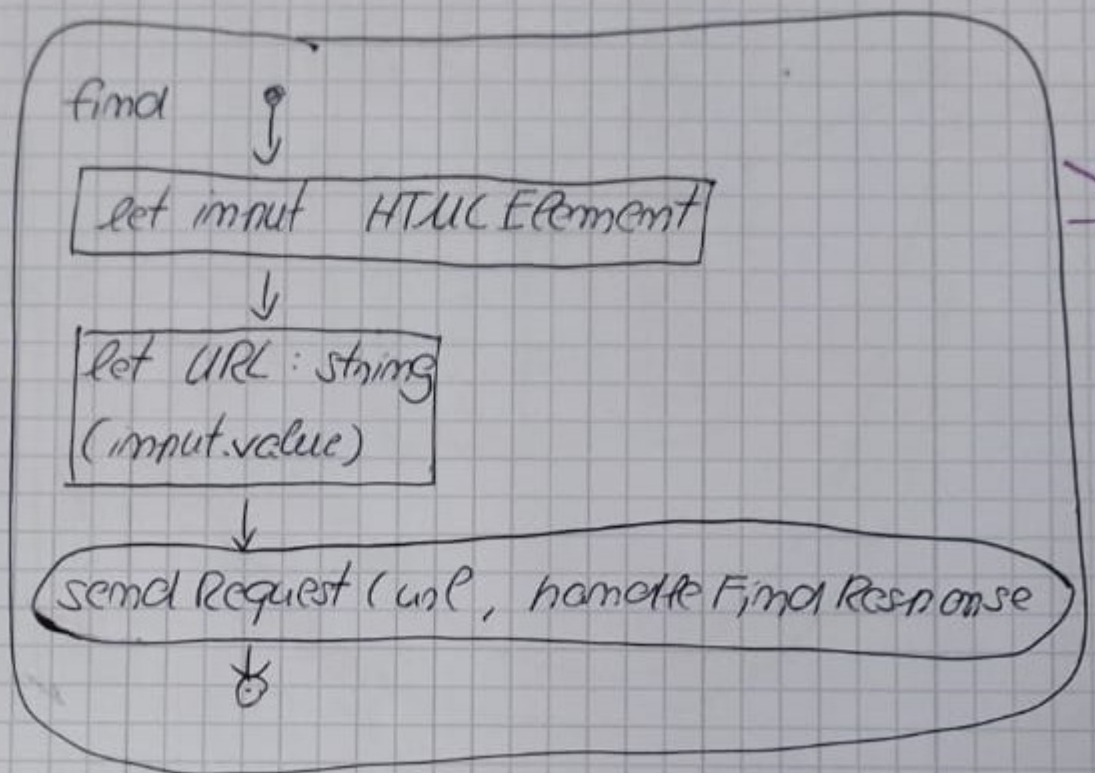 find
let input HTMLElement
let URL: string
(input.value)
sendRequest (url, handleFindResponse